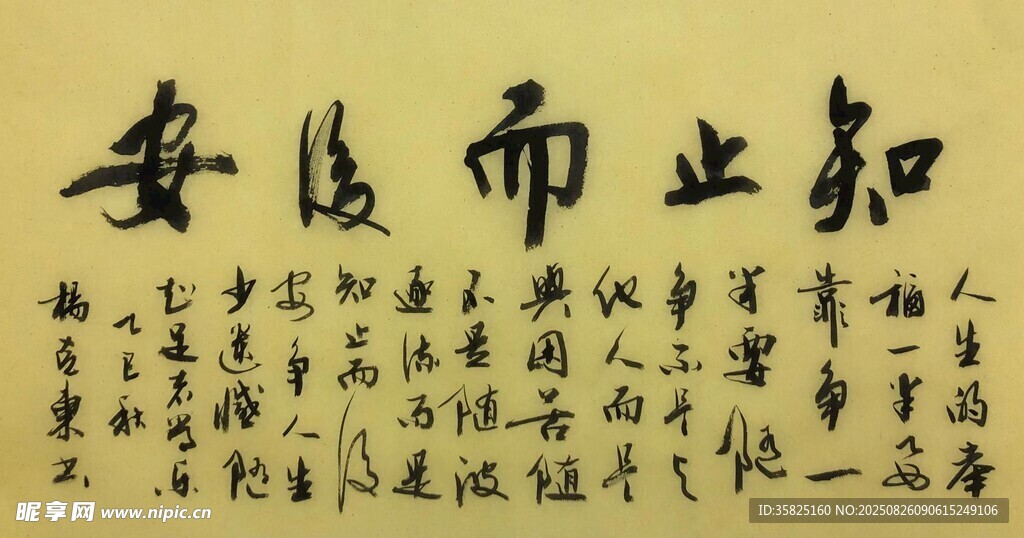 知止而後安
人生的幸
福一半要
靠争一
半要随
争不是与
他人而是
與困苦随
不是随波
逐流而是
知止而後
安争人生
少遗憾随
知足者常乐
乙巳秋
楊克東书
昵享网 www.nipic.cn
ID:35825160 NO:20250826090615249106